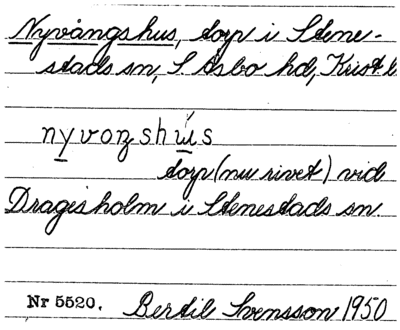 Nyvångshus, torp i Stene-
stads sn, S. Åsbo hd, Krist. l.
nyvoŋshu̇s
torp (nu rivet) vid
Dragesholm i Stenestads sn.
Nr 5520. Bertil Svensson 1950